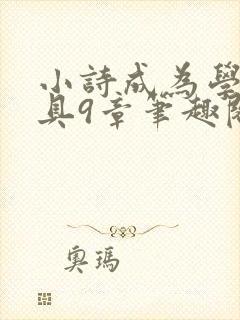 小詩成為學
具9章筆趣閱
奧瑪